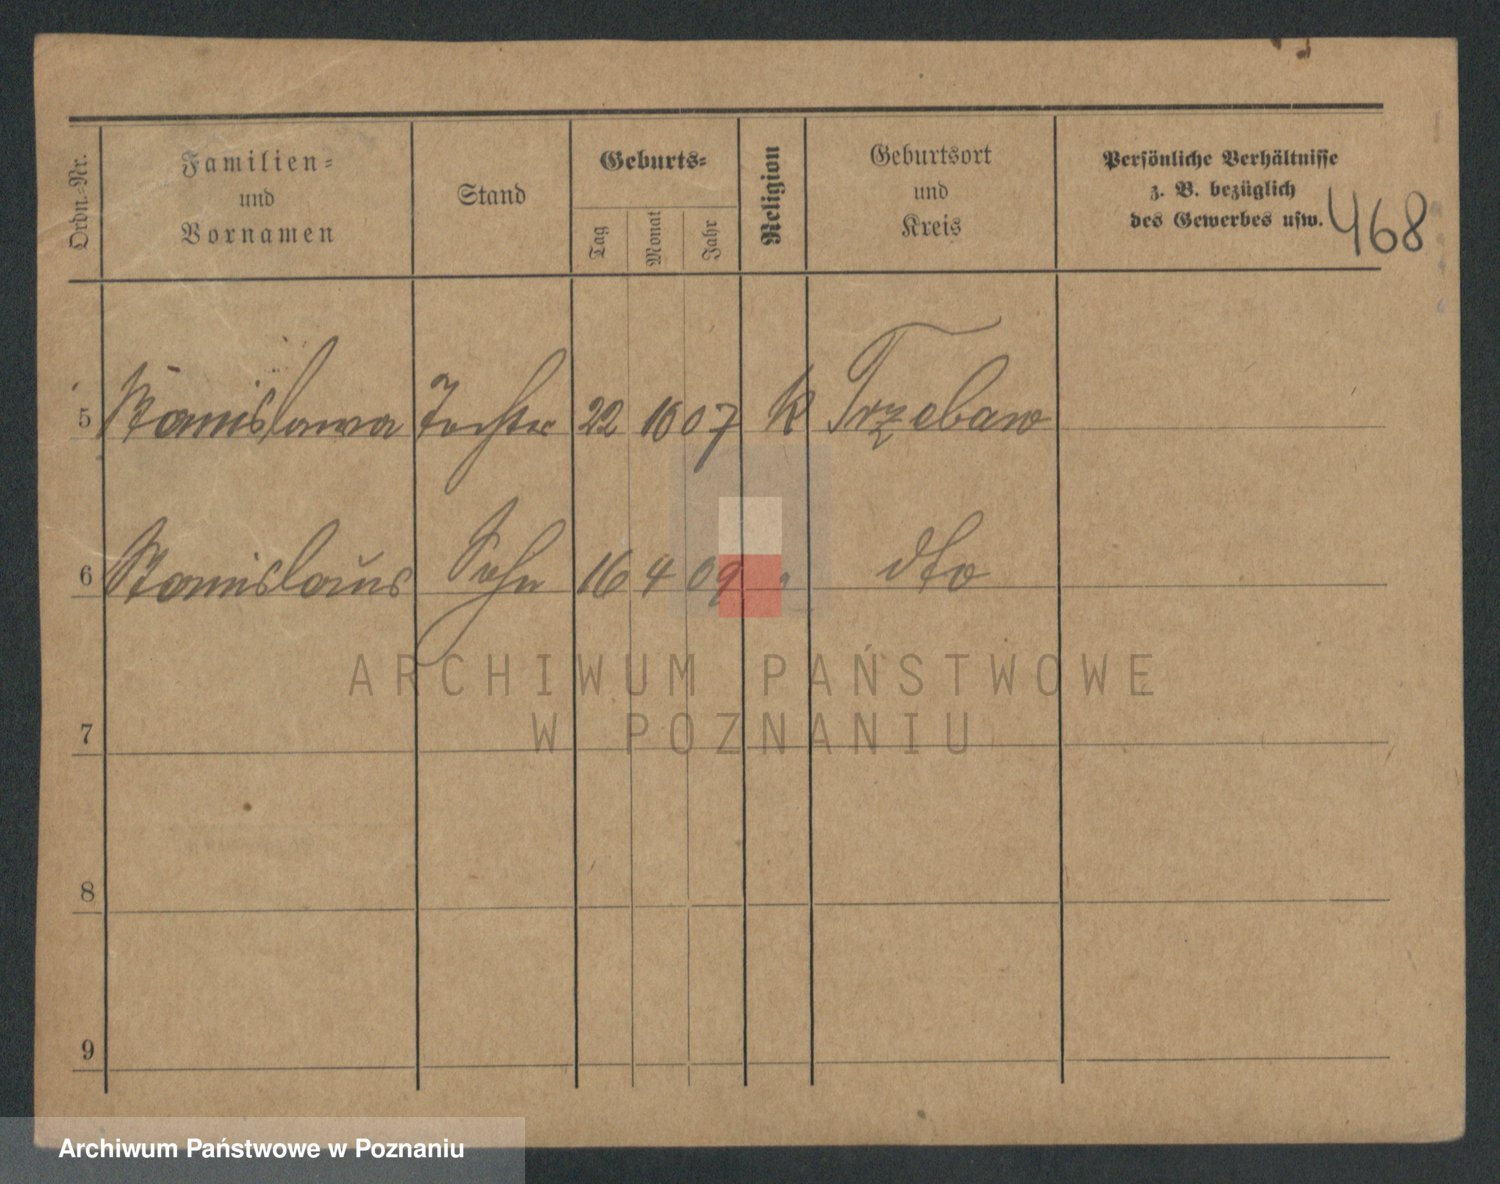 Ordn.-Nr.
Familien-
und
Vornamen
Stand
Geburts-
Tag
Monat
Jahr
Religion
Geburtsort
und
Kreis
Persönliche Verhältnisse
z. B. bezüglich
des Gewerbes usw.
468
5 Stanislawa Tochter 22 10 07 k Trzebaw
6 Stanislaus Sohn 16 4 09 " dto
ARCHIWUM PAŃSTWOWE
W POZNANIU
7
8
9
Archiwum Państwowe w Poznaniu